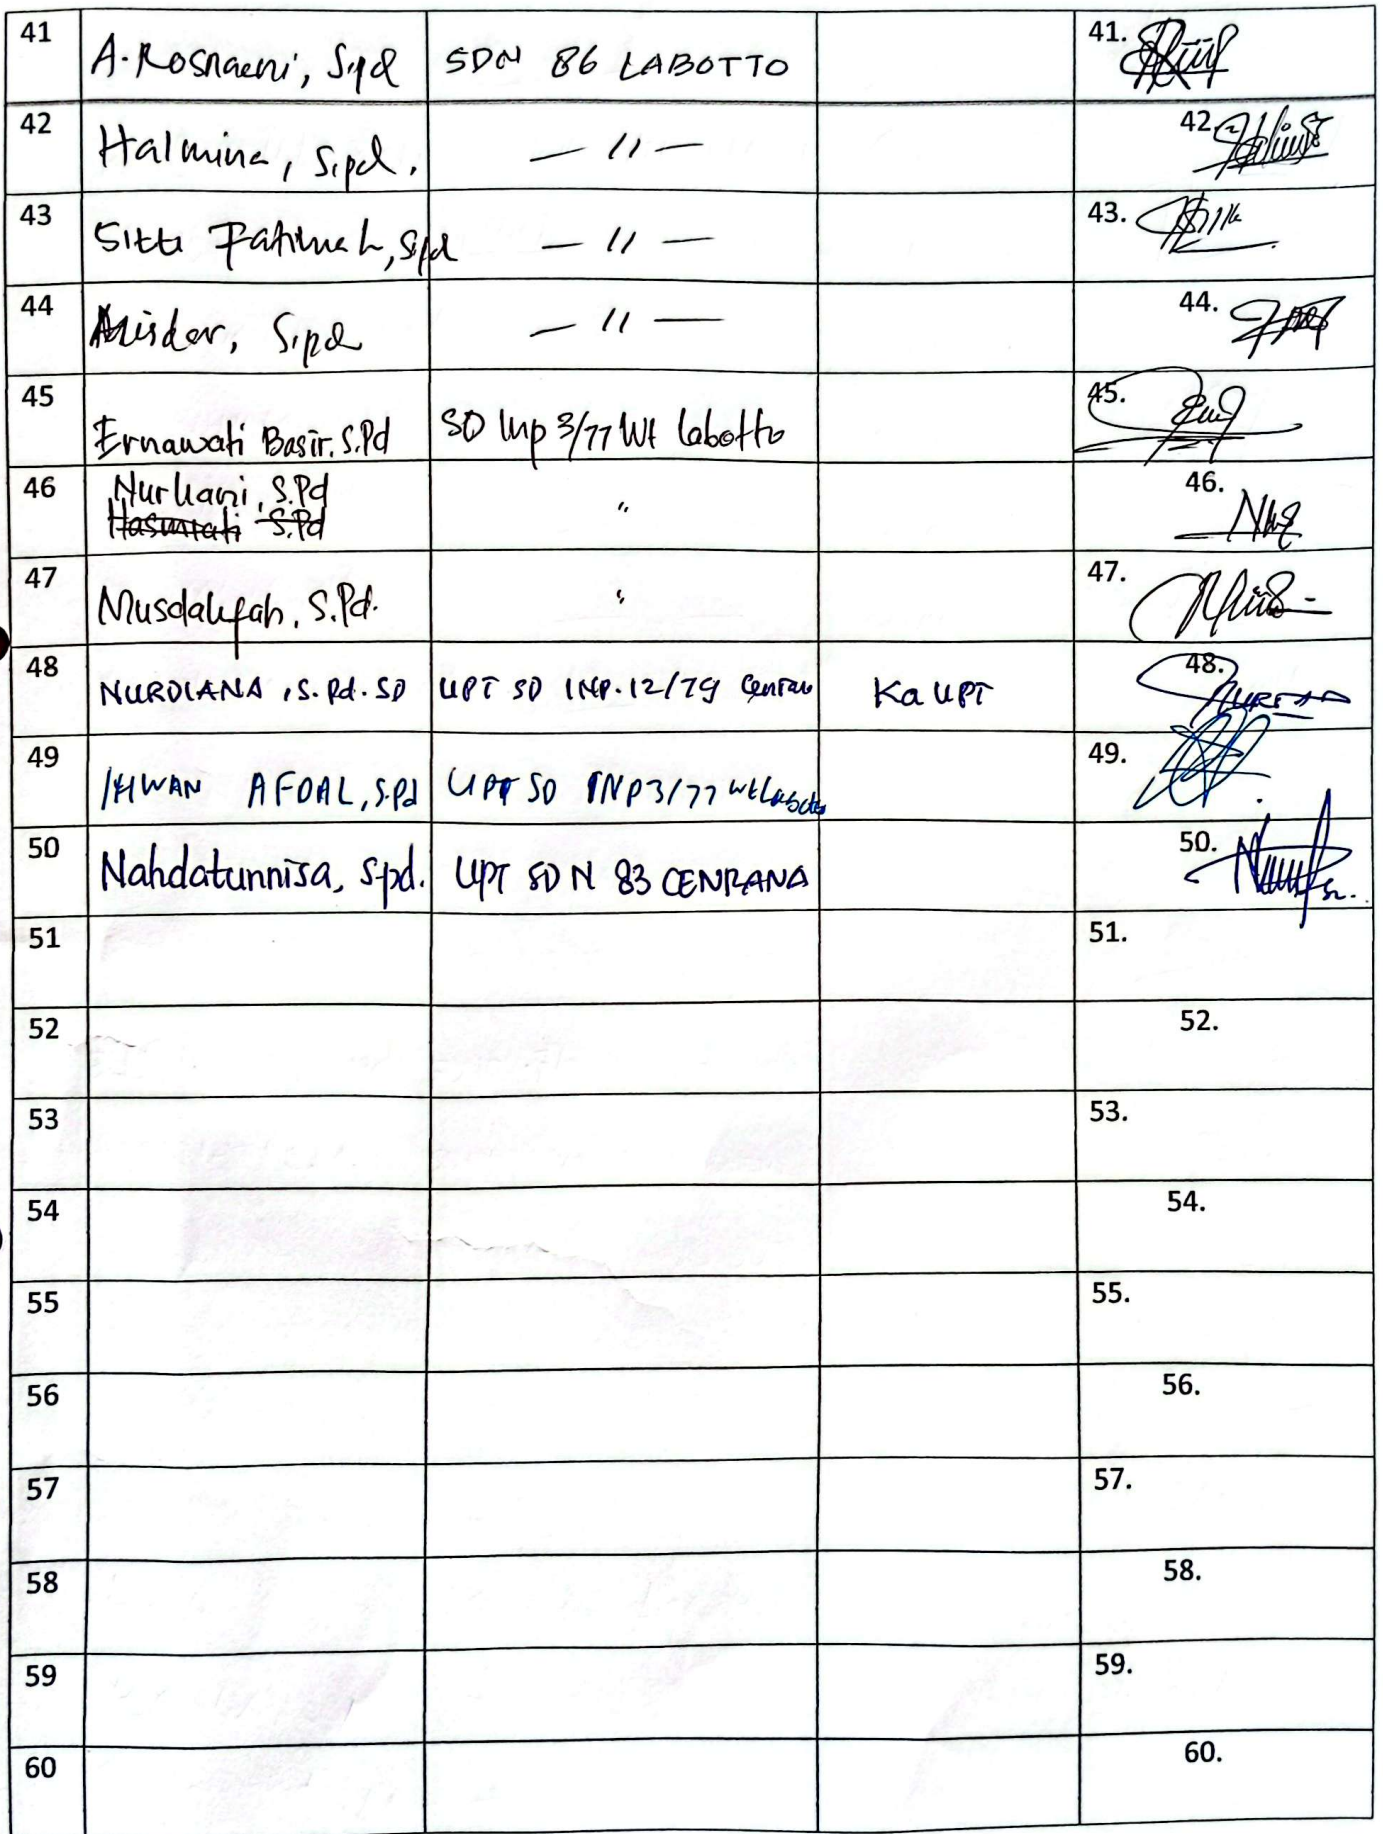 41 A. Rosnaeni, S.pd SDN 86 LABOTTO 41.
42 Halmina, S.pd. — " — 42.
43 Sitti Fatimah, Spd — " — 43.
44 S.pd — " — 44.
45 Ernawati Basir, S.Pd SD Inp 3/77 Wt Labotto 45.
46 Nurhani, S.Pd " 46.
Hasmiati S.Pd
47 Musdalifah, S.Pd. " 47.
48 NURDIANA, S.Pd.SD UPT SD INP.12/79 Cenrana Ka UPT 48.
49 IHWAN AFDAL, S.Pd UPT SD INP 3/77 Wt Labotto 49.
50 Nahdatunnisa, S.pd. UPT SDN 83 CENRANA 50.
51 51.
52 52.
53 53.
54 54.
55 55.
56 56.
57 57.
58 58.
59 59.
60 60.